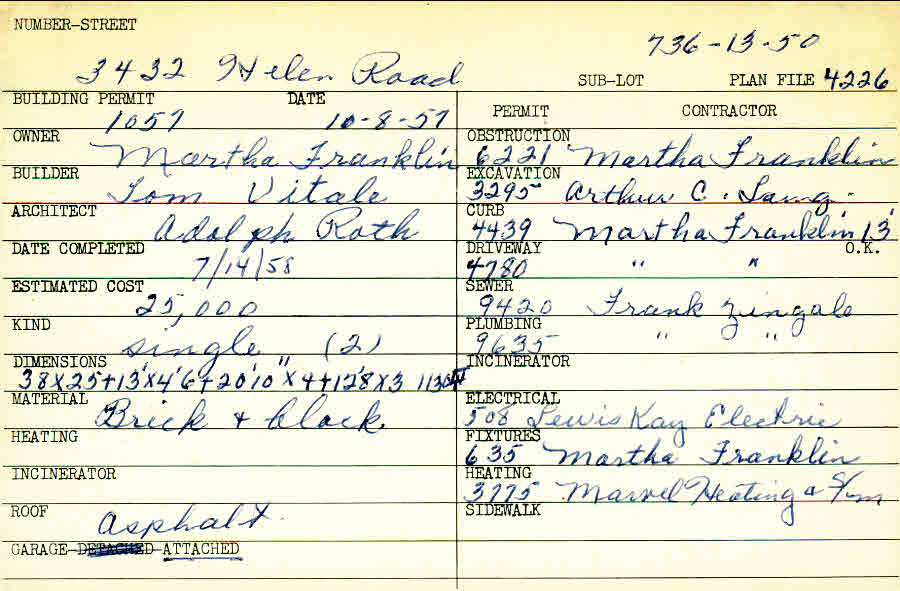 NUMBER-STREET
736-13-50
3432 Helen Road
SUB-LOT PLAN FILE 4226
BUILDING PERMIT DATE
1057 10-8-57
OWNER Martha Franklin
BUILDER Tom Vitale
ARCHITECT Adolph Roth
DATE COMPLETED 7/14/58
ESTIMATED COST 25,000
KIND single (2)
DIMENSIONS
38x25+13'x4'6+20'10"x4+12'8x3
MATERIAL Brick + block
HEATING
INCINERATOR
ROOF asphalt
GARAGE-DETACHED-ATTACHED
PERMIT CONTRACTOR
OBSTRUCTION 6221 Martha Franklin
EXCAVATION 3295 Arthur C.
CURB 4439 Martha Franklin 13'
DRIVEWAY O.K.
4780 " "
SEWER 9420 Frank Zingale
PLUMBING 9635 " "
INCINERATOR
ELECTRICAL 508 Lewis Kay Electric
FIXTURES 635 Martha Franklin
HEATING 3775 Marvel Heating &
SIDEWALK